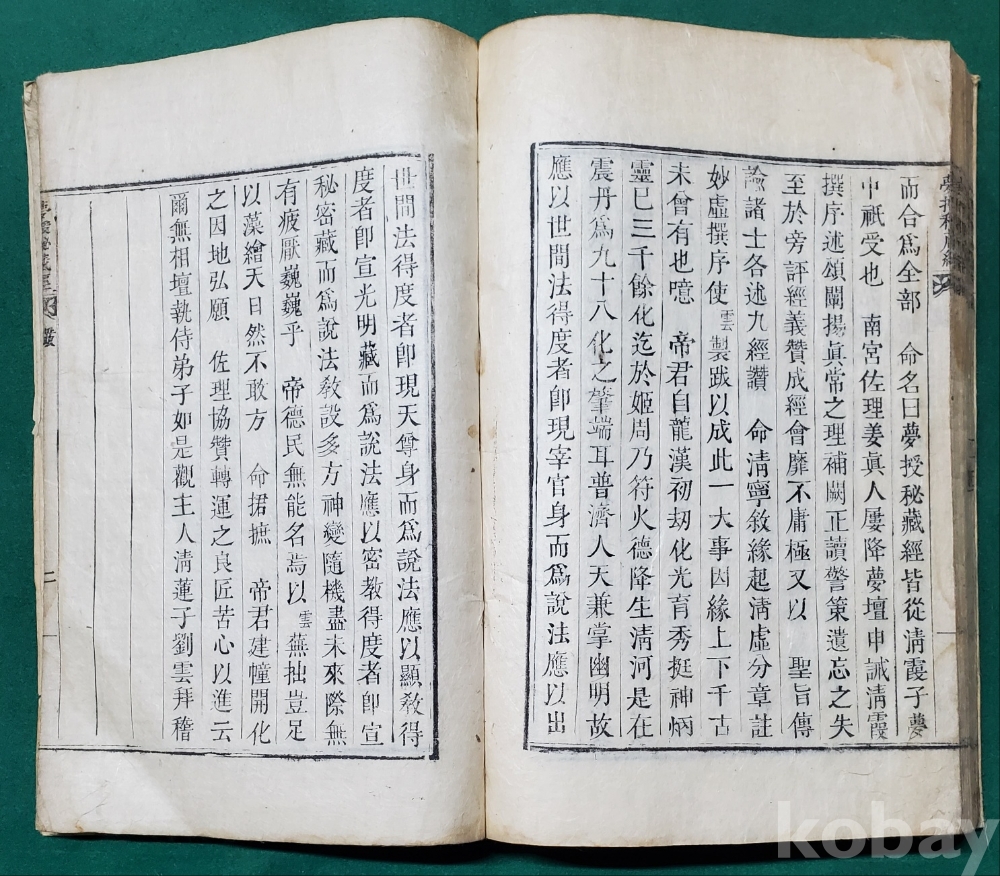 而合爲全部　命名曰夢授秘藏經皆從淸霞子夢
中祇受也　南宮佐理姜眞人屢降夢壇申誡淸霞
撰序述頌闡揚眞常之理補闕正讀警策遺忘之失
至於旁評經義贊成經會靡不庸極又以　聖旨傳
諭諸士各述九經讚　命淸寧敘緣起淸虛分章註
妙虛撰序使雲製跋以成此一大事因緣上下千古
未曾有也噫　帝君自龍漢初劫化光育秀挺神炳
靈已三千餘化迄於姬周乃符火德降生淸河是在
震丹爲九十八化之肇端耳普濟人天兼掌幽明故
應以世間法得度者卽現宰官身而爲說法應以出
世間法得度者卽現天尊身而爲說法應以顯敎得
度者卽宣光明藏而爲說法應以密敎得度者卽宣
秘密藏而爲說法敎設多方神變隨機盡未來際無
有疲厭巍巍乎　帝德民無能名焉以雲蕪拙豈足
以藻繪天日然不敢方　命捃摭　帝君建幢開化
之因地弘願　佐理協贊轉運之良匠苦心以進云
爾無相壇執侍弟子如是觀主人淸蓮子劉雲拜稽
二
kobay